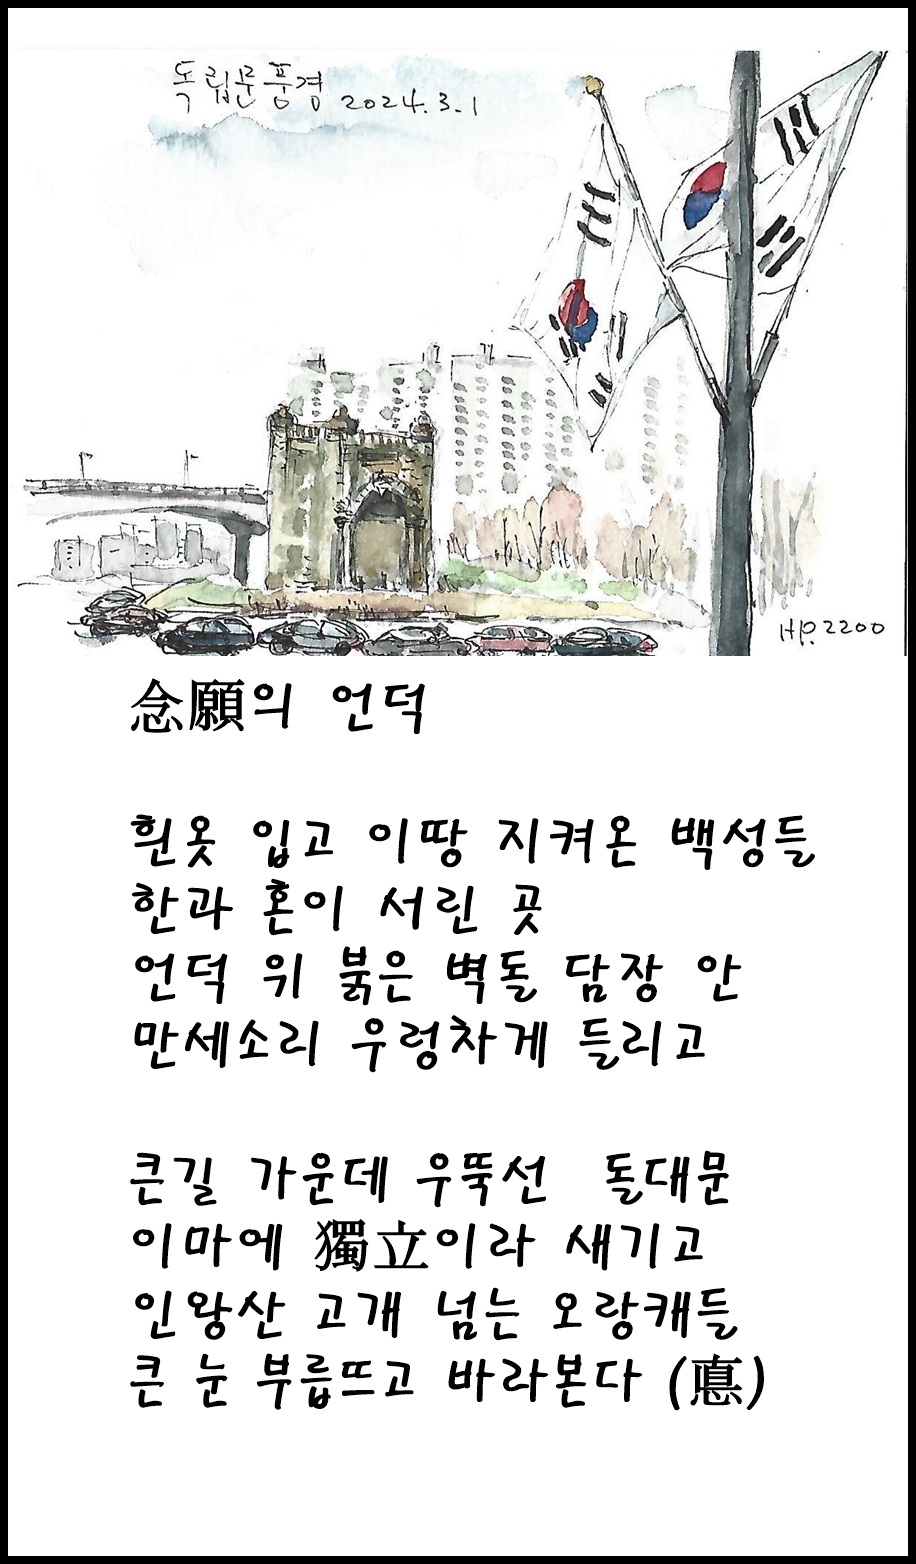 독립문풍경 2024.3.1
HP.2200
念願의 언덕
흰옷 입고 이땅 지켜온 백성들
한과 혼이 서린 곳
언덕 위 붉은 벽돌 담장 안
만세소리 우렁차게 들리고
큰길 가운데 우뚝선 돌대문
이마에 獨立이라 새기고
인왕산 고개 넘는 오랑캐들
큰 눈 부릅뜨고 바라본다 (悳)